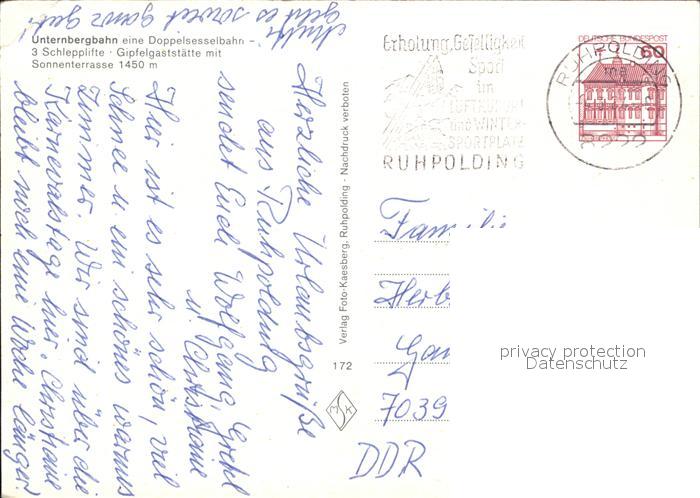 Unternbergbahn eine Doppelsesselbahn -
3 Schlepplifte · Gipfelgaststätte mit
Sonnenterrasse 1450 m
Herzliche Urlaubsgrüße
aus Ruhpolding
sendet Euch Wolfgang, Gretel
u. Christiane
Hier ist es sehr schön, viel
Schnee u. ein schönes warmes
Zimmer. Wir sind über die
Karnevalstage hier. Christiane
bleibt noch eine Woche länger.
Mutti
geht es soweit ganz gut!
Verlag Foto-Kaesberg, Ruhpolding - Nachdruck verboten
172
MSK
Erholung, Geselligkeit
Sport
im
LUFTKURORT
und WINTER-
SPORTPLATZ
RUHPOLDING
DEUTSCHE BUNDESPOST
60
RUHPOLDING
Familie
Herb
Gau
7039
DDR
privacy protection
Datenschutz